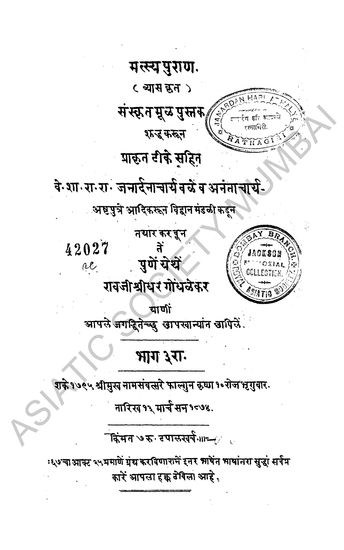 मत्स्यपुराण.
( व्यास कृत )
संस्कृत मूळ पुस्तक
शुद्ध करून
प्राकृत टीके सहित
वे॰ शा॰ रा॰ रा॰ जनार्दनाचार्य वळे व अनंताचार्य-
अष्टपुत्रे आदिकरून विद्वान मंडळी कडून
तयार करवून
तें
42027
पुणें येथें
रावजी श्रीधर गोंधळेकर
याणीं
आपले जगद्धितेच्छु छापखान्यांत छापिलें.
भाग ३रा.
शके १७९५ श्रीमुख नाम संवत्सरे फाल्गुन कृष्ण १० रोज भृगुवार.
तारिख १३ मार्च सन १८७४.
किंमत ७ रु. टपालखर्च
प्रमाणें ग्रंथ करविणारानें इतर भाषेंत भाषांतरा सुद्धां सर्वत्र
कारें आपला हक्क ठेविला आहे.
JANARDAN HARI
RATNAGIRI
BOMBAY BRANCH
JACKSON
MEMORIAL
COLLECTION.
ASIATIC
ASIATIC SOCIETY MUMBAI